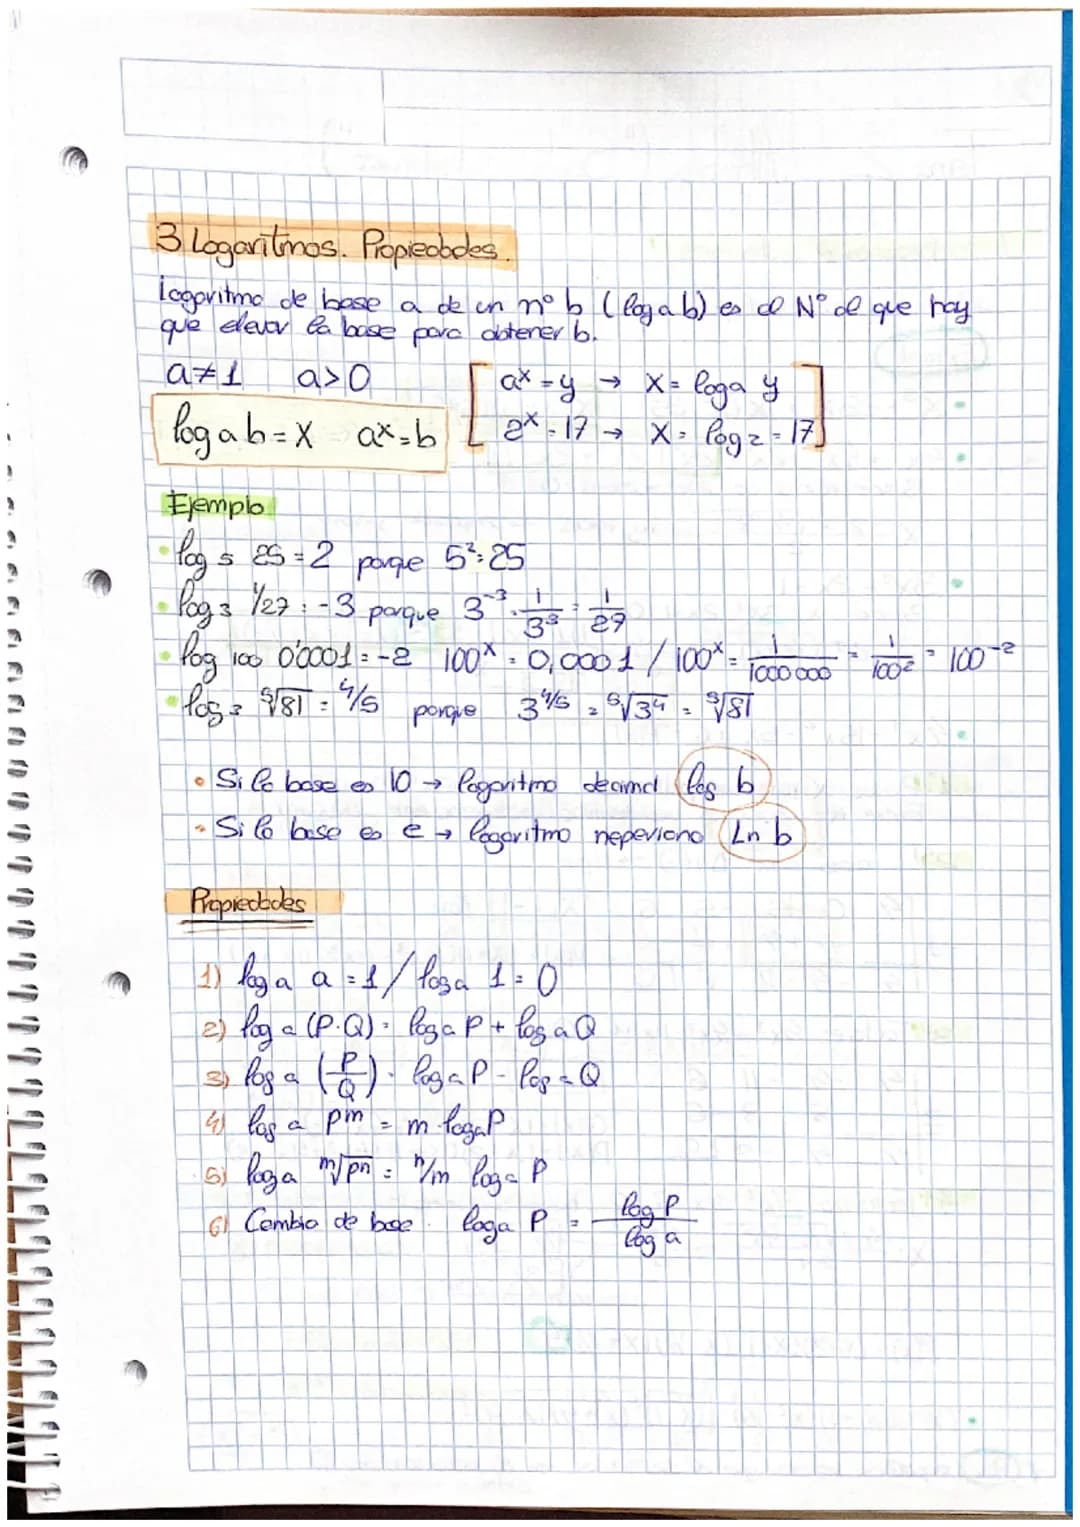 3 Logaritmos. Propiedades.
Logaritmo de base a de un nº b (log a b) es el Nº al que hay
que elevar la base para obtener b.
a≠1 a>0
[ aˣ = y → x = log a y
log a b = x aˣ = b
2ˣ = 17 → x = log 2 = 17 ]
Ejemplo
• log 5 25 = 2 porque 5² = 25
• log 3 1/27 = -3 porque 3⁻³ = 1/3³ = 1/27
• log 100 0'0001 = -2 100ˣ = 0,0001 / 100ˣ = 1/1000000 = 1/100² = 100⁻²
• log 3 ⁵√81 = 4/5 porque 3^4/5 = ⁵√3⁴ = ⁵√81
• Si la base es 10 → logaritmo decimal log b
• Si la base es e → logaritmo neperiano Ln b
Propiedades
1) log a a = 1 / log a 1 = 0
2) log a (P·Q) = log a P + log a Q
3) log a (P/Q) = log a P - log a Q
4) log a Pᵐ = m · log a P
5) log a ᵐ√Pⁿ = n/m log a P
6) Cambio de base. log a P = log P / log a